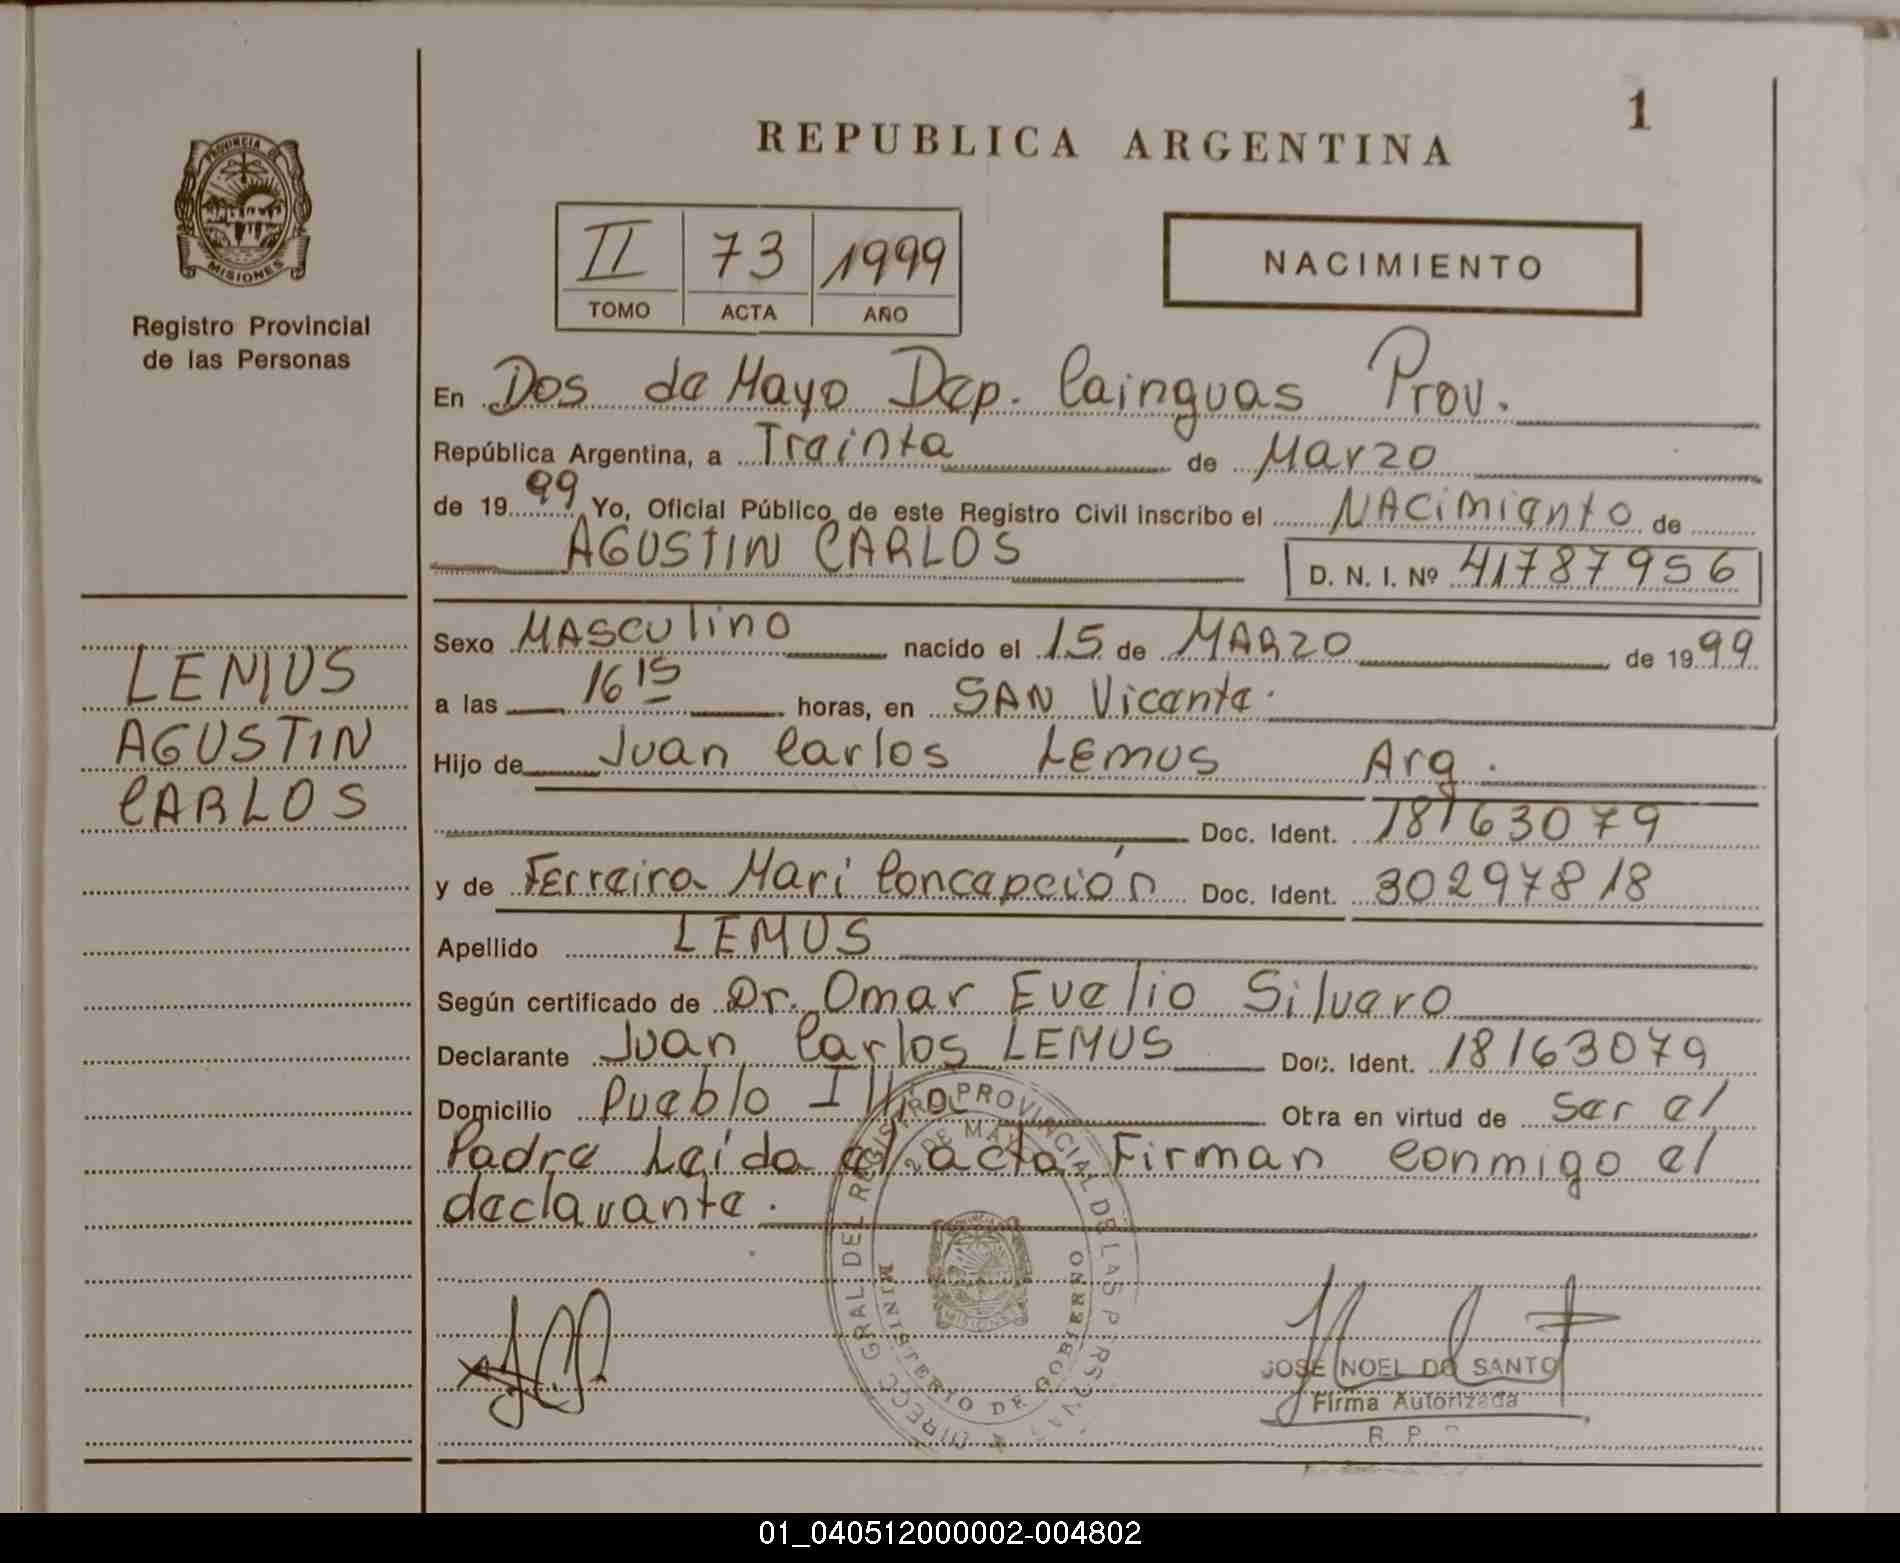 1
REPUBLICA ARGENTINA
PROVINCIA DE
MISIONES
Registro Provincial
de las Personas
II 73 1999
TOMO ACTA AÑO
NACIMIENTO
En Dos de Mayo Dep. Cainguas Prov.
República Argentina, a Treinta de Marzo
de 1999 Yo, Oficial Público de este Registro Civil inscribo el NACimiento de
AGUSTIN CARLOS
D. N. I. Nº 41787956
LEMUS
AGUSTIN
CARLOS
Sexo MASCULINO nacido el 15 de MARZO de 1999
a las 16 15 horas, en SAN Vicente.
Hijo de Juan Carlos Lemus Arg.
Doc. Ident. 18163079
y de Ferreira Mari Concepción Doc. Ident. 30297818
Apellido LEMUS
Según certificado de Dr. Omar Evelio Silvero
Declarante Juan Carlos LEMUS Doc. Ident. 18163079
Domicilio Pueblo Illia Obra en virtud de ser el
Padre Leída el acta Firman conmigo el
declarante.
DIRECC. GRAL DEL REGISTRO PROVINCIAL DE LAS PERSONAS
2 DE MAYO
MINISTERIO DE GOBIERNO
MISIONES
JOSE NOEL DO SANTO
Firma Autorizada
R. P.
01_040512000002-004802